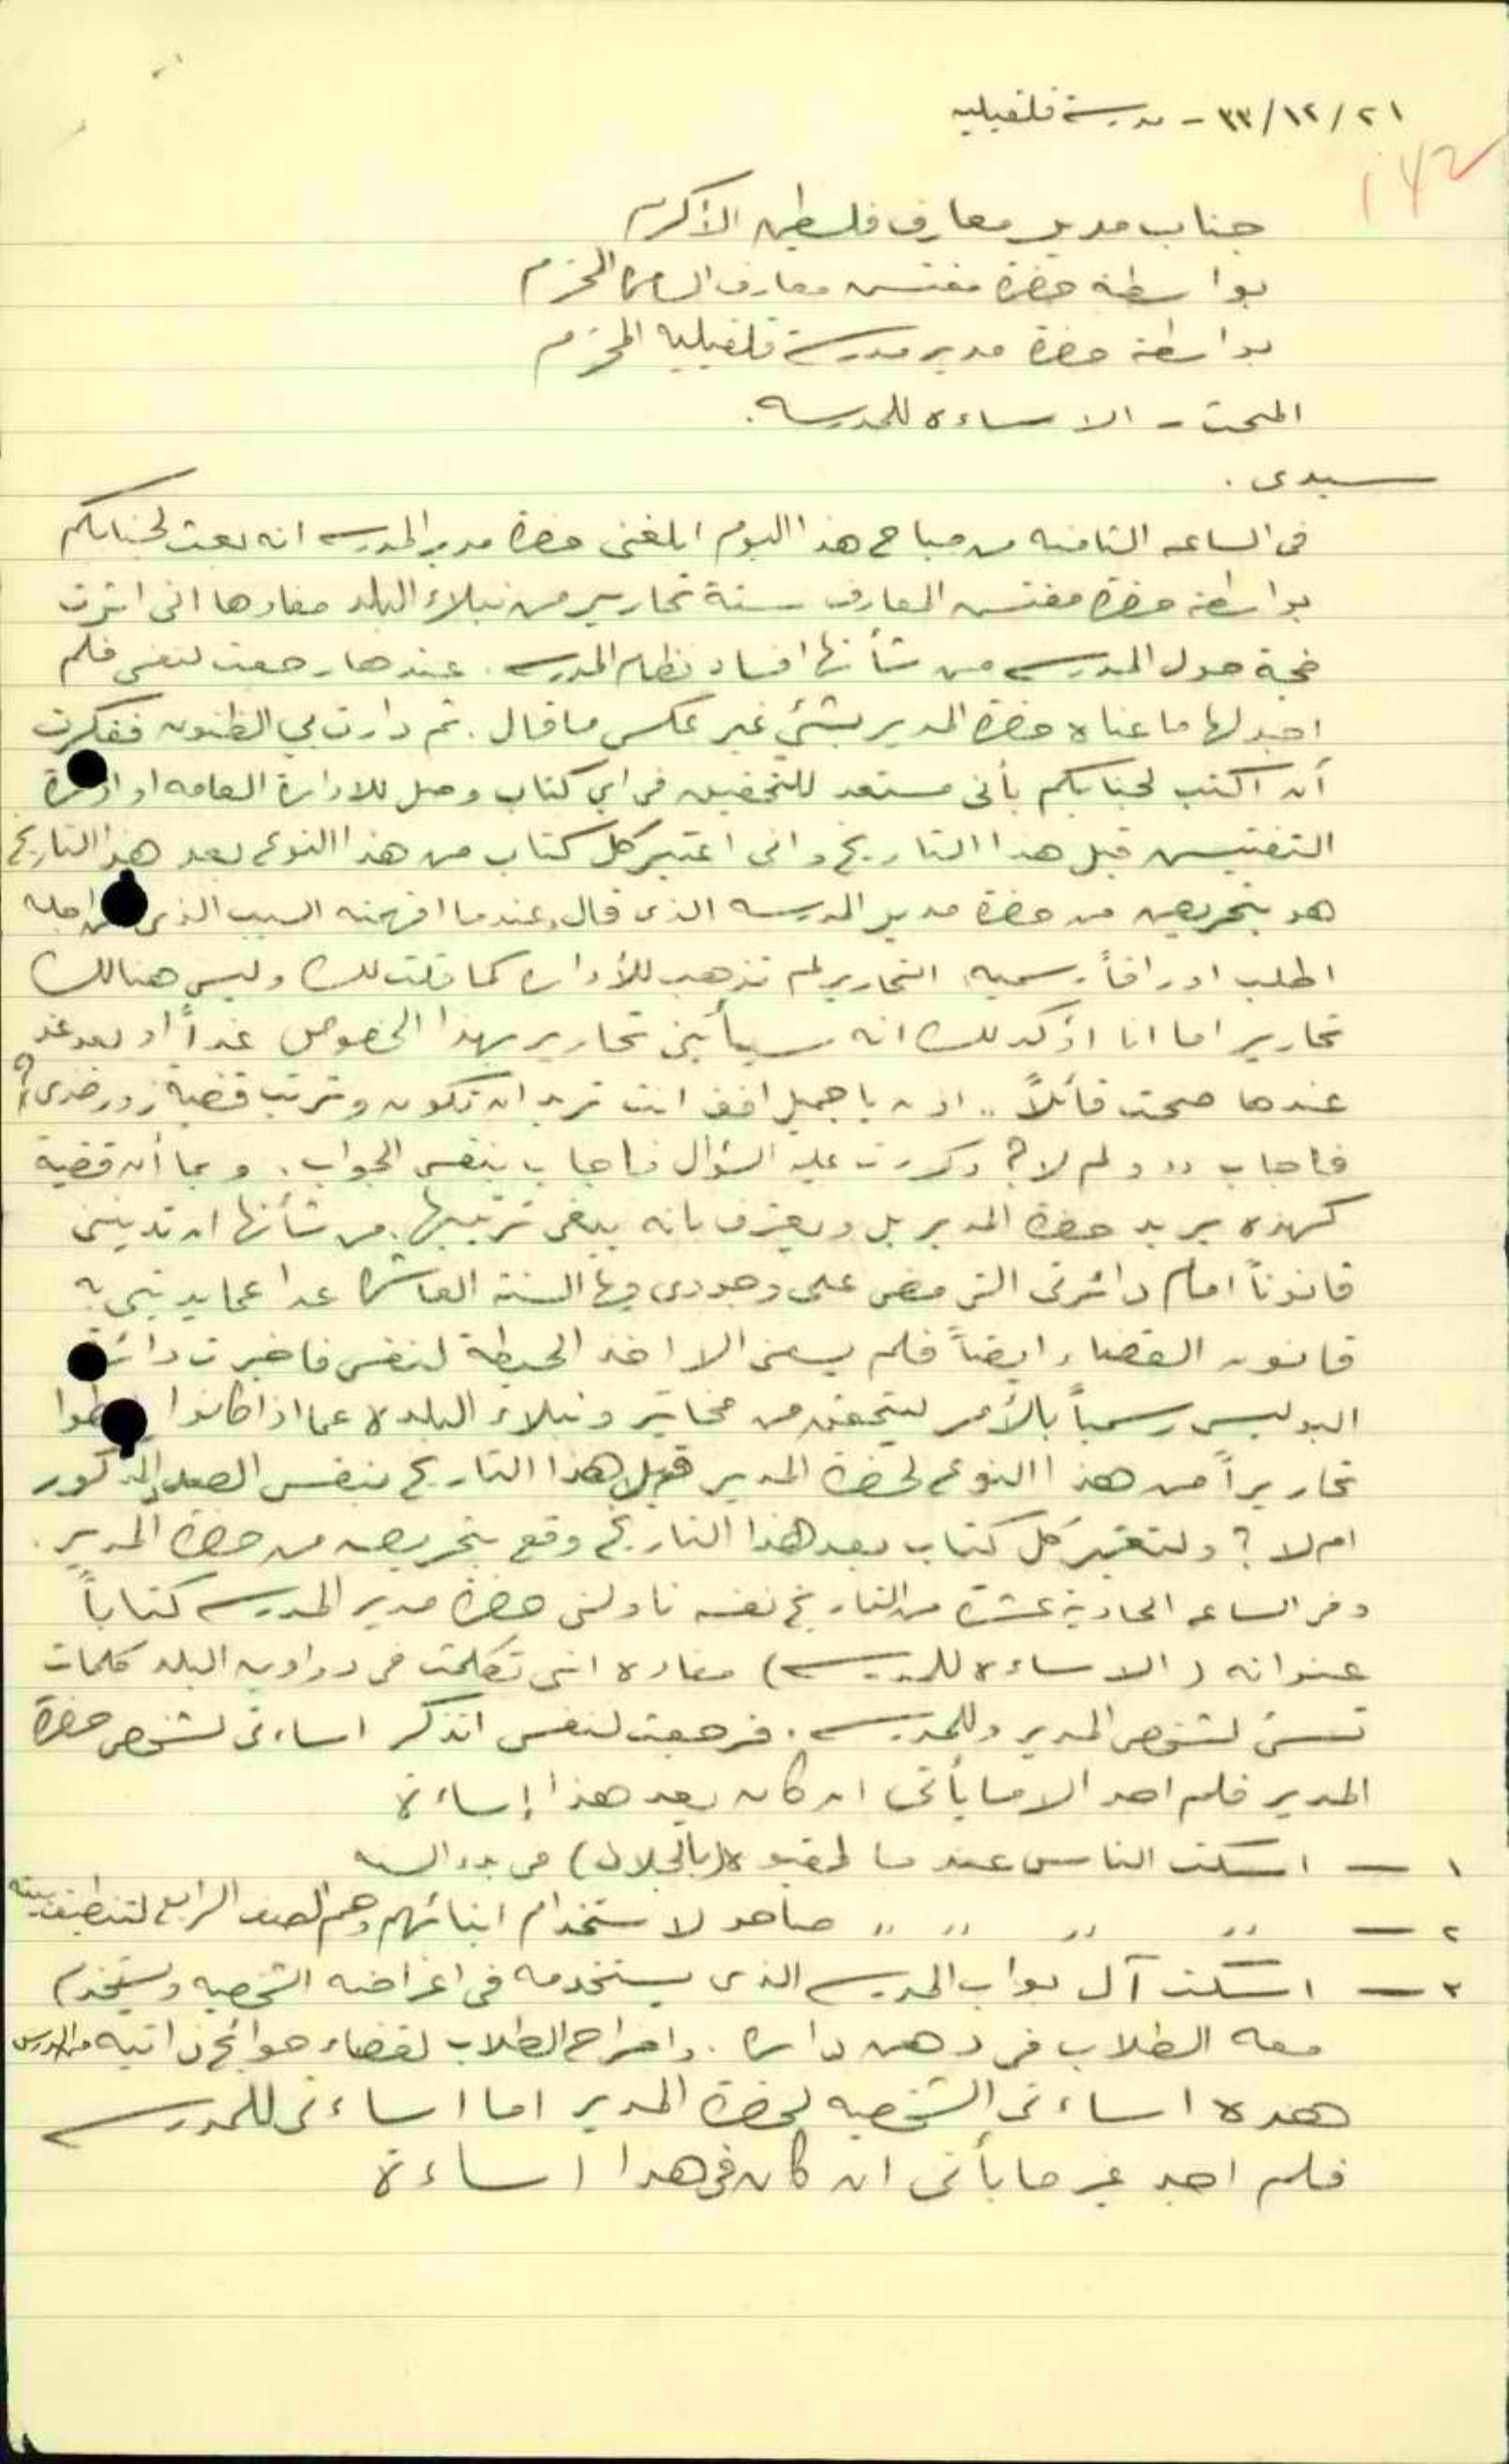 ٢١/١٢/٣٣ - مدرسة قلقيليه
142
جناب مدير معارف فلسطين الأكرم
بواسطة حضرة مفتش معارف السامرة المحترم
بواسطة حضرة مدير مدرسة قلقيلية المحترم
المبحث - الاساءة للمدرسه.
سيدى.
فى الساعه الثامنه من صباح هذا اليوم ابلغنى حضرة مدير المدرسه انه بعث لجنابكم
بواسطة حضرة مفتش المعارف ستة تحارير من نبلاء البلد مفادها انى اثرت
ضجة حول المدرسه من شأنها افساد نظام المدرسه. عندها رجعت لنفسى فلم
اجد لها ما عناه حضرة المدير بشئ غير عكس ما قال. ثم دارت بي الظنون ففكرت
أن اكتب لجنابكم بأنى مستعد للتحقيق فى اي كتاب وصل للادارة العامه او
التفتيش قبل هذا التاريخ وانى اعتبر كل كتاب من هذا النوع بعد هذا التاريخ
هو بتحريض من حضرة مدير المدرسه الذى قال، عندما افهمته السبب الذى من اجله
اطلب اوراقاً رسميه، التحارير لم تذهب للأداره كما قلت لك وليس هنالك
تحارير اما انا اؤكد لك انه سيأتينى تحارير بهذا الخصوص غداً او بعد غد
عندها صحت قائلاً ,, اذن يا جميل افندى انت تريد ان تكون وترتب قضية زور ضدى؟
فاجاب ,, ولم لا؟ وكررت عليه السؤال فاجاب بنفس الجواب. وبما أن قضية
كهذه يريد حضرة المدير بل ويعترف بانه يبغى ترتيبها، من شأنها ان تديننى
قانوناً امام دائرتى التى مضى على وجودى فيها السنة العاشرة عدا عما يديننى به
قانون القضاء ايضاً فلم يسعنى الا اخذ الحيطة لنفسى فاخبرت دائرة
البوليس رسمياً بالأمر ليتحقق من مخاتير ونبلاء البلده عما اذا كانوا
تحاريراً من هذا النوع لحضرة المدير قبل هذا التاريخ بنفس الصدد المذكور
ام لا؟ ولتعتبر كل كتاب بعد هذا التاريخ وقع بتحريض من حضرة المدير.
وفى الساعه الحادية عشرة من التاريخ نفسه ناولنى حضرة مدير المدرسه كتاباً
عنوانه (الاساءة للمدرسه) مفاده اننى تكلمت فى دواوين البلد كلمات
تسئ لشخص المدير وللمدرسه. فرجعت لنفسى اتذكر اساءتى لشخص حضرة
المدير فلم اجد الا ما يأتى ان كان يعد هذا إساءة
١ - اسكت الناس عندما لقبوه (بالجلاد) فى بدء السنه
٢ - ,, ,, ,, ,, صاحو لاستخدام ابنائهم وهم الصف الرابع لتنظيف بيته
٣ - اسكت آل بواب المدرسه الذى يستخدمه فى اغراضه الشخصيه ويستخدم
معه الطلاب فى دهن داره. واخراج الطلاب لقضاء حوائج ذاتيه من الدرس
هذه اساءتى الشخصيه لحضرة المدير اما اساءتى للمدرسه
فلم اجد غير ما يأتى ان كان فى هذا اساءة